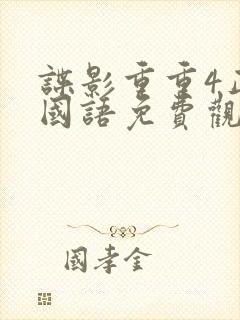 諜影重重4
國語免費觀
國孝金